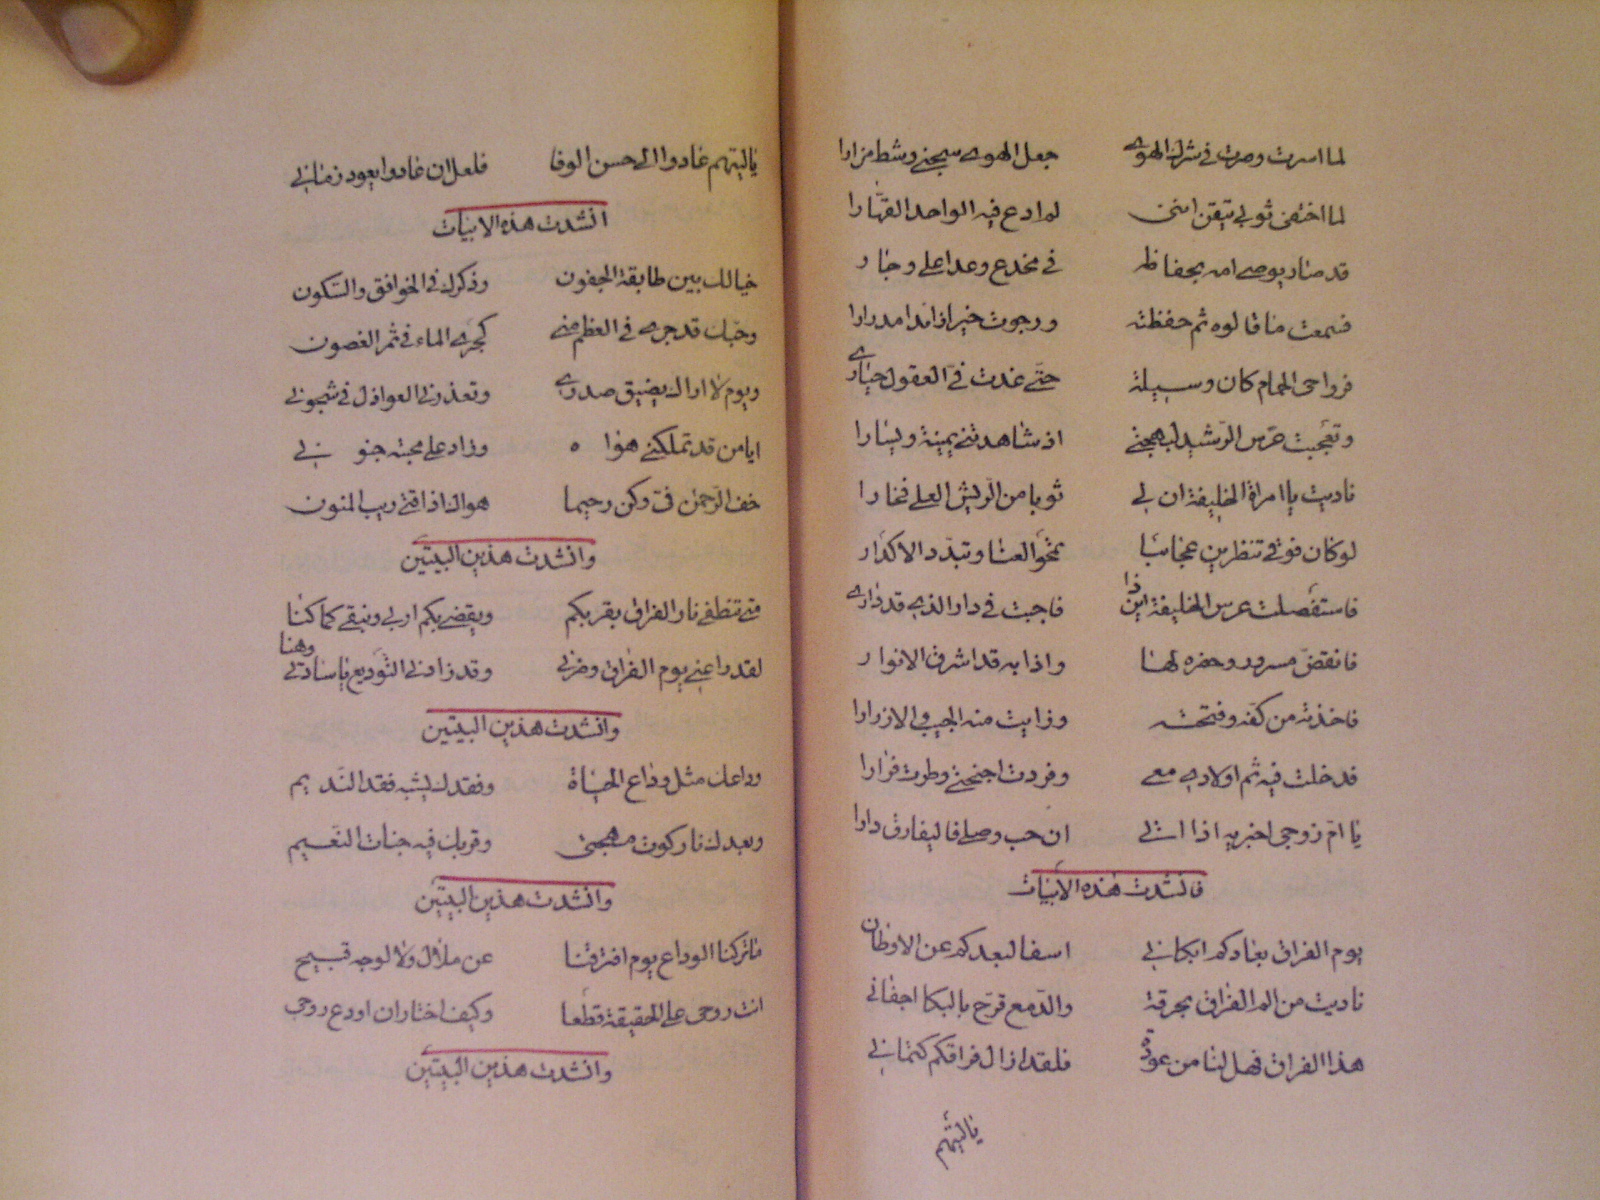 لما اسرت وصرت في شرك الهوى جعل الهوى سجني وشط مزارا
لما اختفى ثوبي تيقن انني لم ادع فيه الواحد القهارا
قد صار يوصي امه بحفاظه في مخدع وعدا علي وجارا
فسمعت ما قالوه ثم حفظته ورجوت خيرا زائدا مدرارا
فرواحي الحمام كان وسيلة حتى غدت في العقول حيارى
وتعجبت عرس الرشيد لبهجتي اذ شاهدتني يمينة ويسارا
ناديت يا امراة الخليفة ان لي ثوبا من الريش العلي فخارا
لو كان فوقي تنظرين عجائبا تمحو العنا وتبدد الاكدار
فاستفصلت عرس الخليفة اين ذا فاجبت في دار الذي قد دارى
فانقض مسرور وحضره لها واذا به قد اشرق الانوار
فاخذته من كفه وفتحته ورايت منه الجيب والازرارا
فدخلت فيه ثم اولادي معي وفردت اجنحتي وطرت فرارا
يا ام زوجي اخبريه اذا اتى ان حب وصلي فاليفارق دارا
فانشدت هذه الابيات
يوم الفراق بعادكم ابكاني اسفا لبعدكم عن الاوطان
ناديت من الم الفراق بحرقة والدمع قرح بالبكا اجفاني
هذا الفراق فهل لنا من عودة فلقد ازال فراقكم كتماني
ياليتهم
ياليتهم عادوا الى حسن الوفا فلعل ان عادوا يعود زماني
انشدت هذه الابيات
خيالك بين طابقة الجفون وذكرك في الخوافق والسكون
وحبك قد جرى في العظم مني كجري الماء في ثمر الغصون
ويوم لا اراك يضيق صدري وتعذرني العواذل في شجوني
ايا من قد تملكني هواه وزاد على محبته جنوني
خف الرحمن في وكن رحيما هواك اذاقني ريب المنون
وانشدت هذين البيتين
متى تنطفي نار الفراق بقربكم ويقضى بكم اربي ونبقى كما كنا
لقد راعني يوم الفراق وضرني وقد زادني التوديع يا سادتي وهنا
وانشدت هذين البيتين
وداعك مثل وداع الحياة وفقدك يشبه فقد النديم
وبعدك نار كوت مهجتي وقربك فيه جنات النعيم
وانشدت هذين البيتين
ما تركنا الوداع يوم افترقنا عن ملال ولا لوجه قبيح
انت روحي على الحقيقة قطعا وكيف اختار ان اودع روحي
وانشدت هذين البيتين